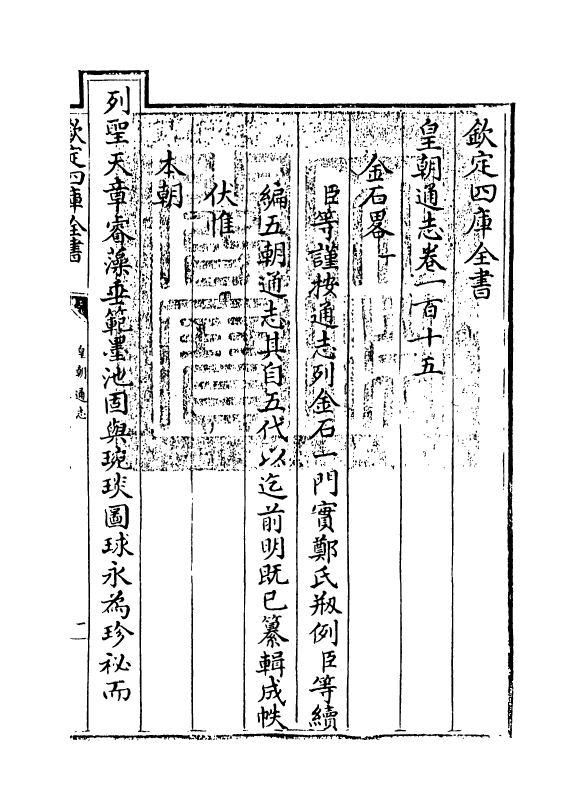 欽定四庫全書
皇朝通志卷一百十五
金石畧一
臣等謹按通志列金石一門實鄭氏刱例臣等續
編五朝通志其自五代以迄前明既已纂輯成帙
伏惟
本朝
列聖天章睿藻垂範墨池固與琬琰圖球永為珍祕而
欽定四庫全書
皇朝通志